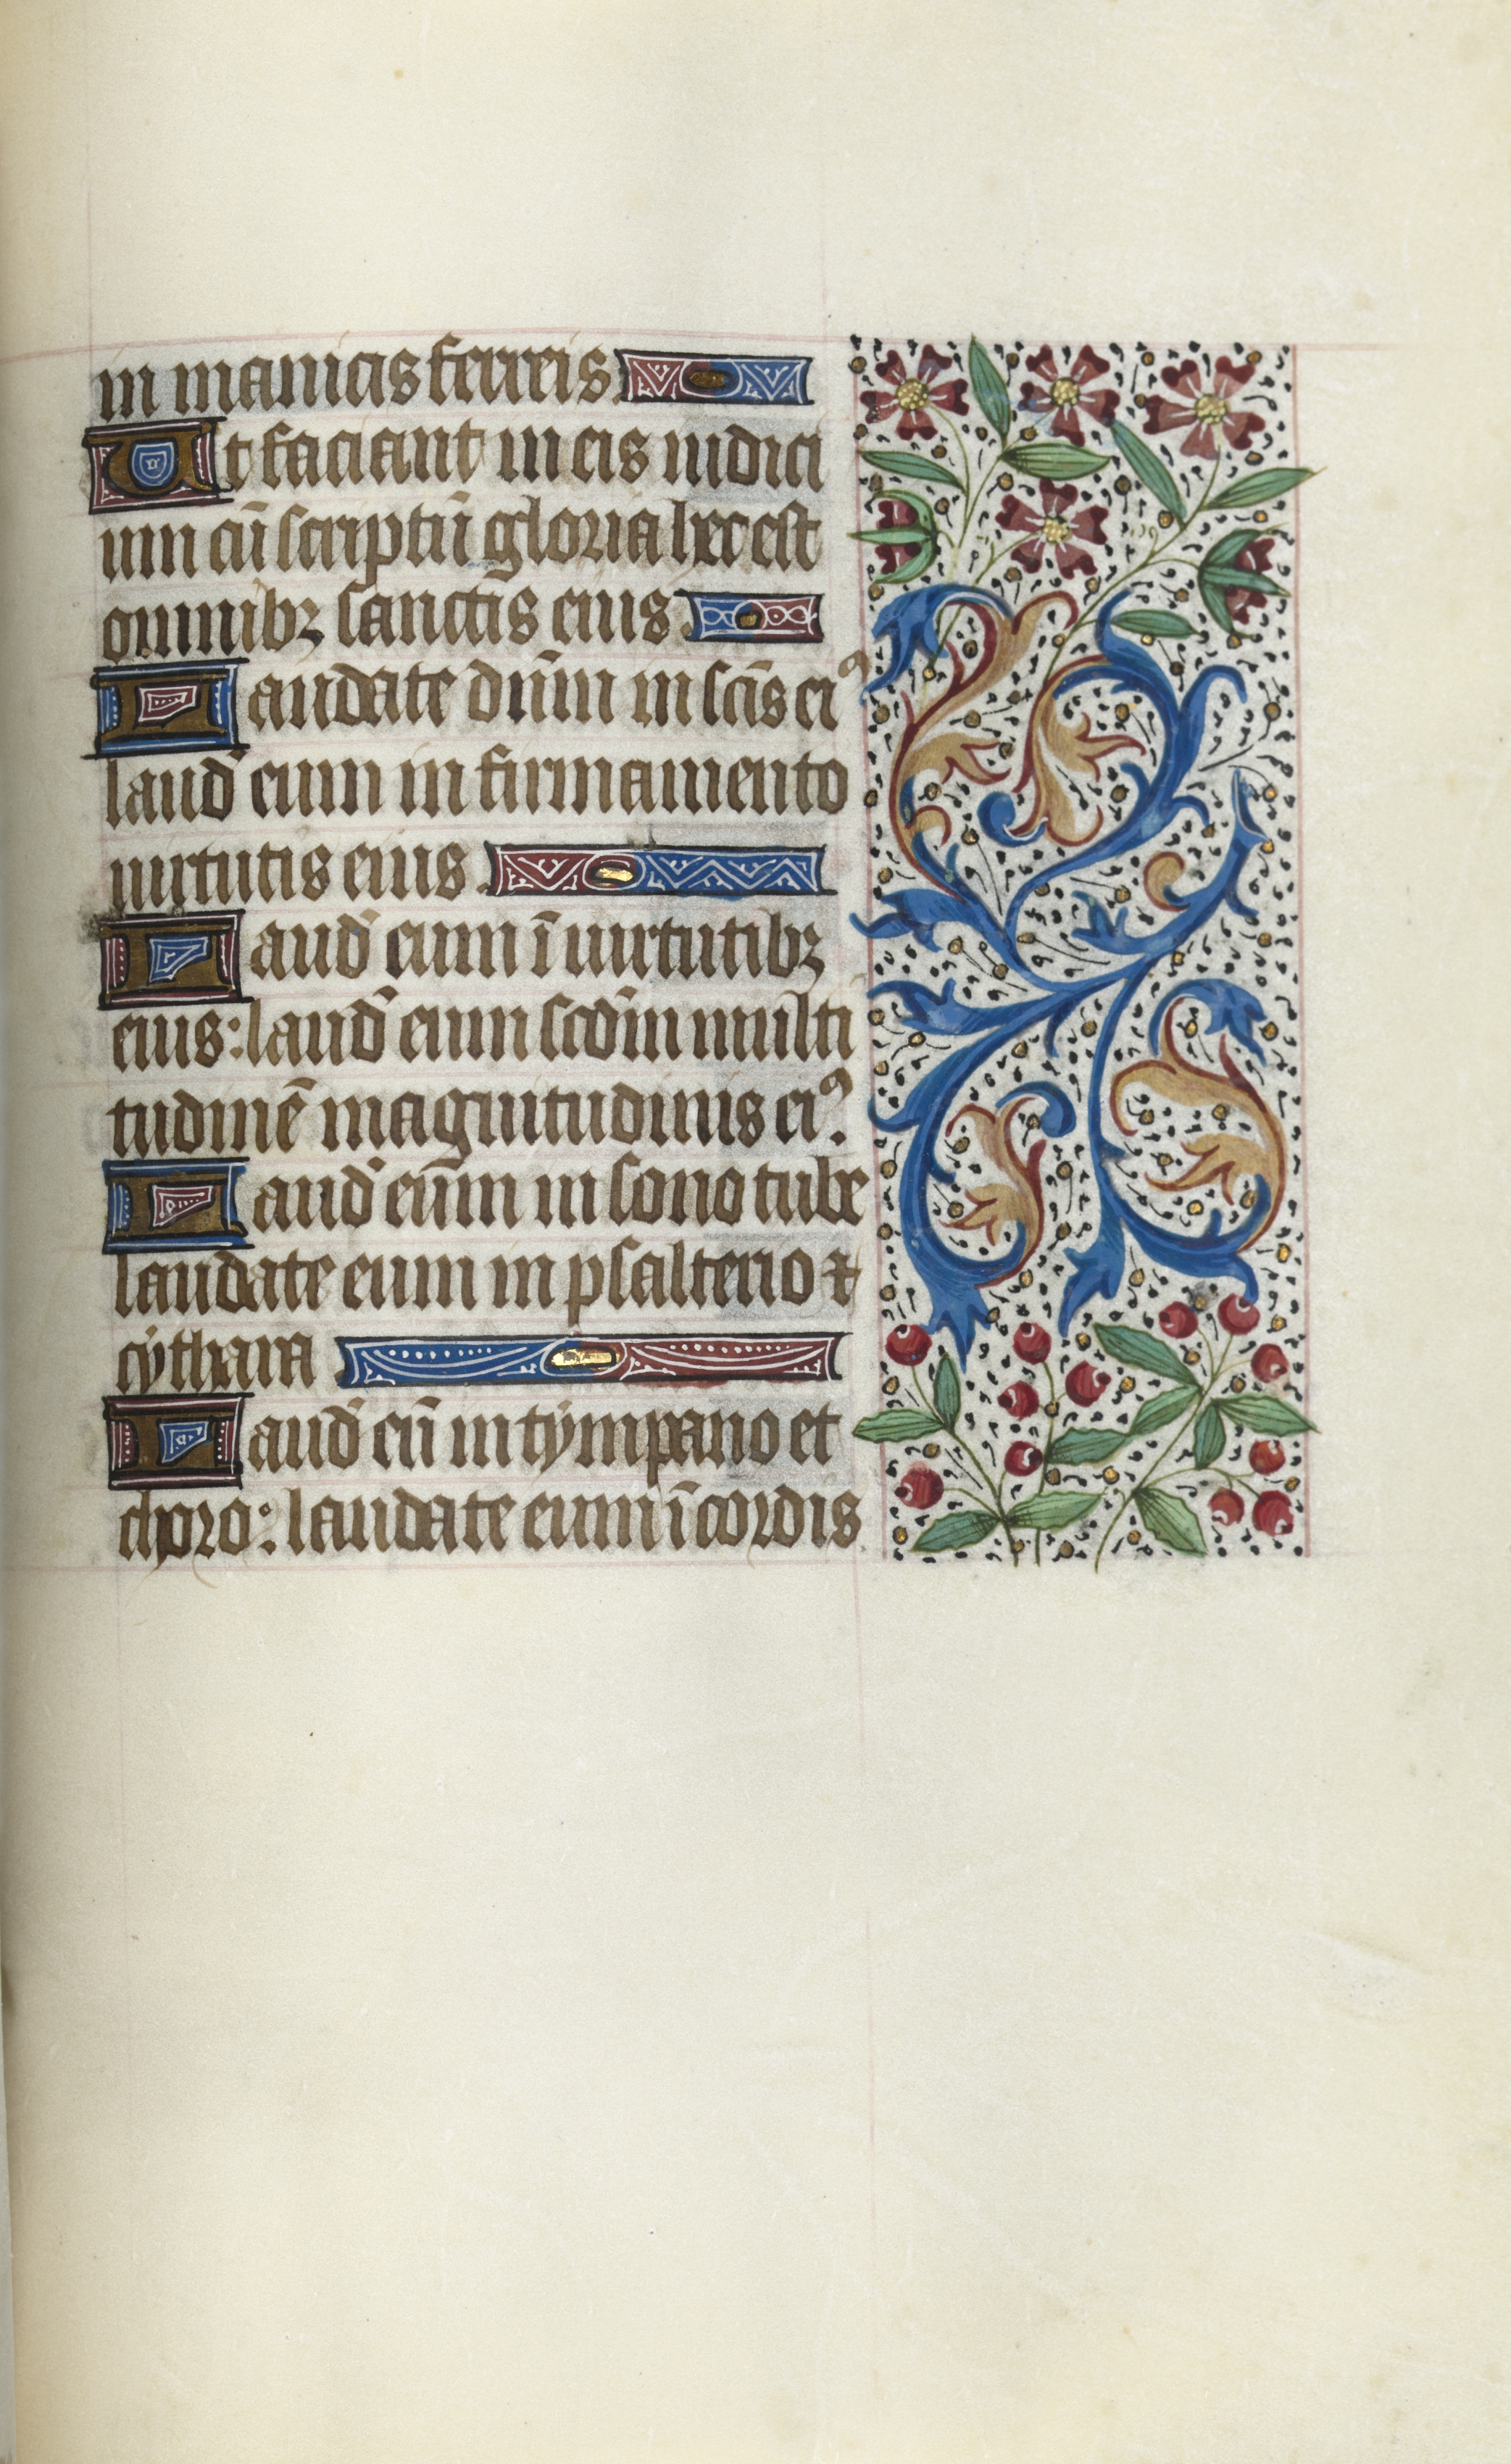 in manicis ferreis
Ut faciant in eis iudici
um cū scriptū gloria hec est
omnibꝫ sanctis eius
Laudate dn̄m in sc̄is eiꝰ
laud̄ eum in firmamento
uirtutis eius
Laud̄ eum ī uirtutibꝫ
eius: laud̄ eum scd̄m multi
tudinē magnitudinis eiꝰ.
Laud̄ eūm in sono tube
laudate eum in psalterio ⁊
cythara
Laud̄ eū in tympano et
choro: laudate eum ī cordis